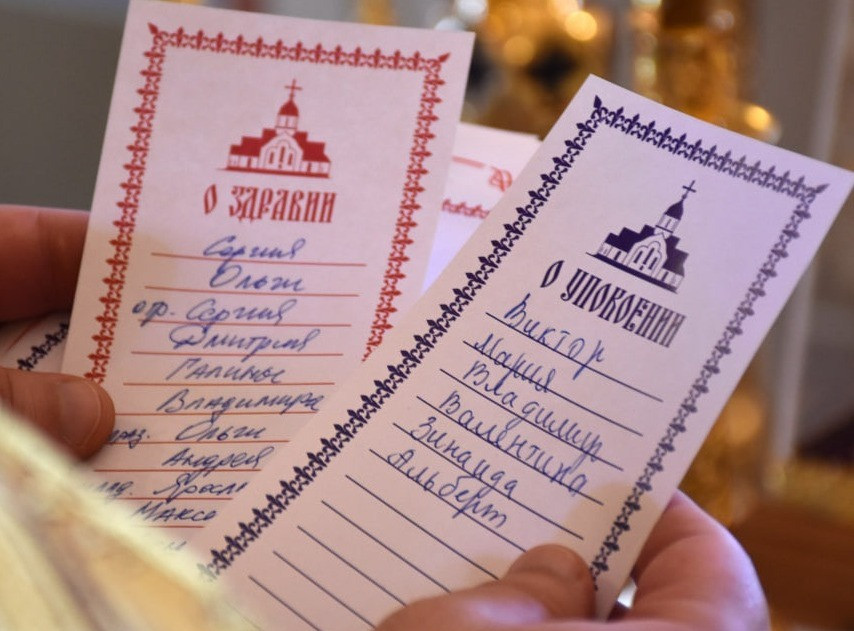 О ЗДРАВИИ
Сергия
Ольги
отр. Сергия
Дмитрия
Галины
Владимира
Ольги
Андрея
Яросл
Макс
О УПОКОЕНИИ
Виктор
Мария
Владимир
Валентина
Зинаида
Альберт